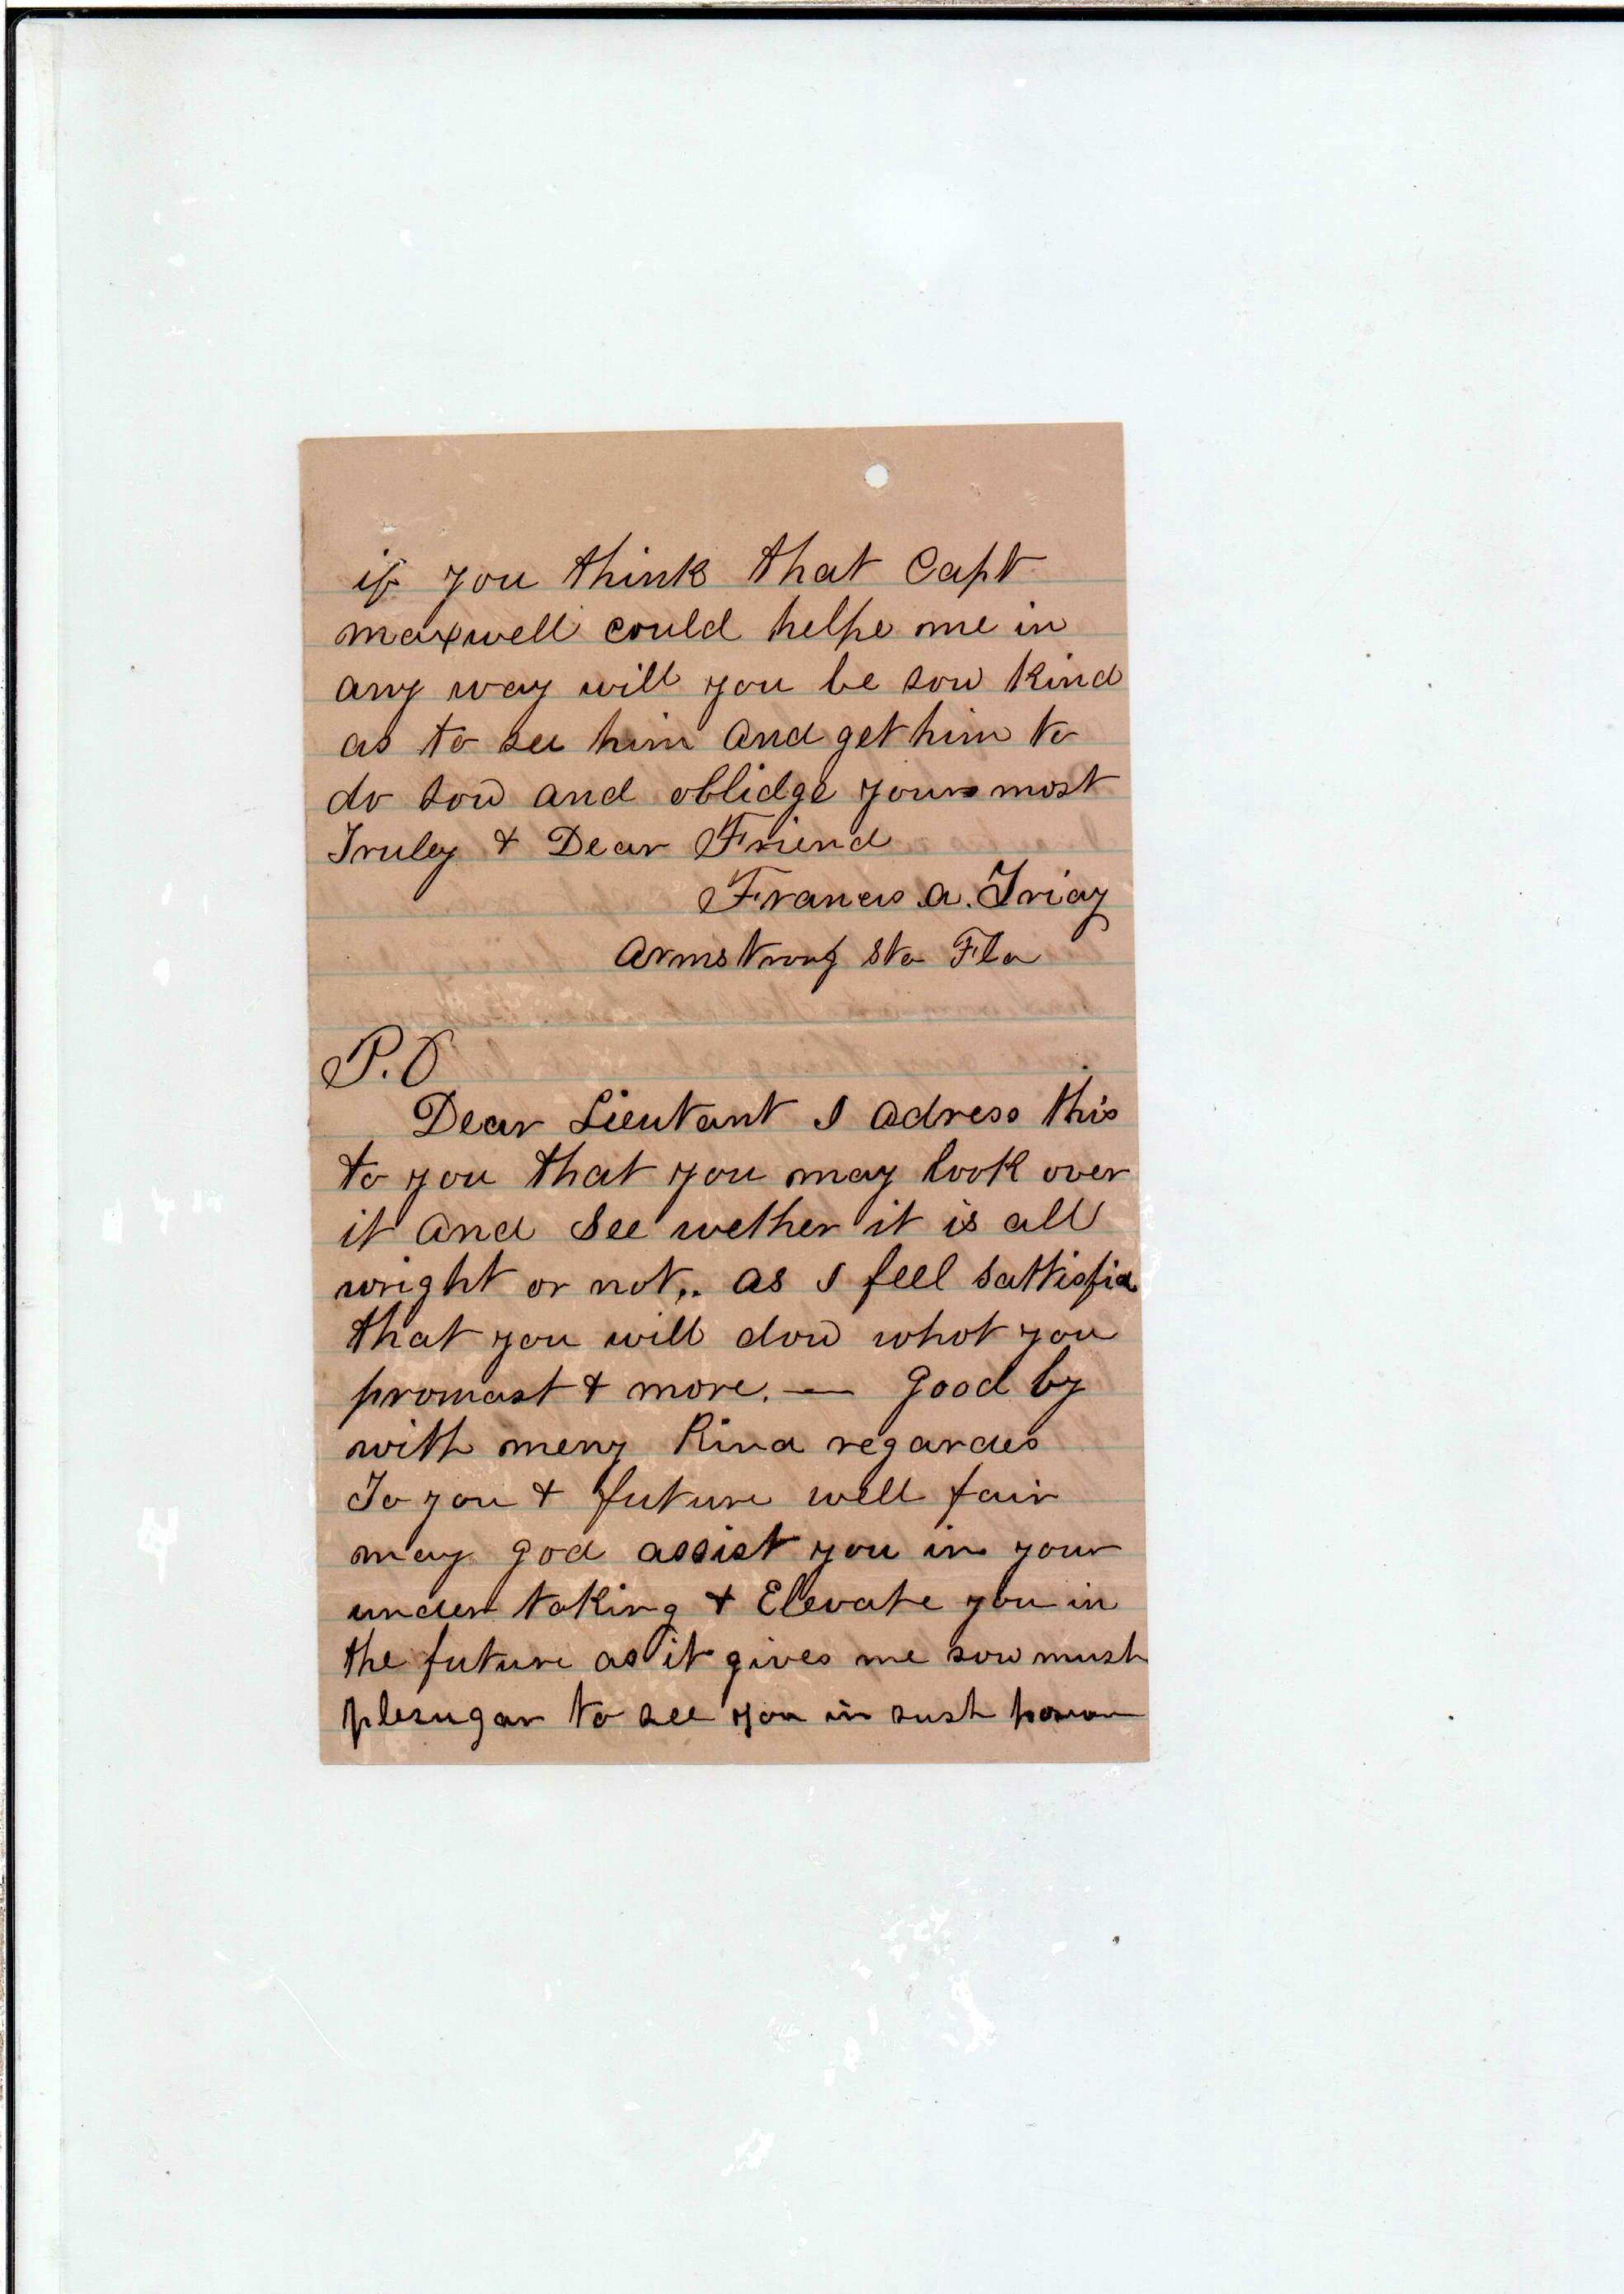 if you think that Capt
maxwell could helpe me in
any way will you be sow kind
as to see him and get him to
do sow and oblidge yours most
Truley & Dear Friend
Francis. a. Triay
Armstrong Sta Fla
P.S
Dear Lieutant I adress this
to you that you may look over
it and See wether it is all
wright or not,. as I feel sattisfid
that you will dow whot you
promast & more. — good by
with meny Kind regardes
To you & future well fair
may god assist you in your
under taking & Elevate you in
the future as it gives me sow mush
plesugar to see you in sush